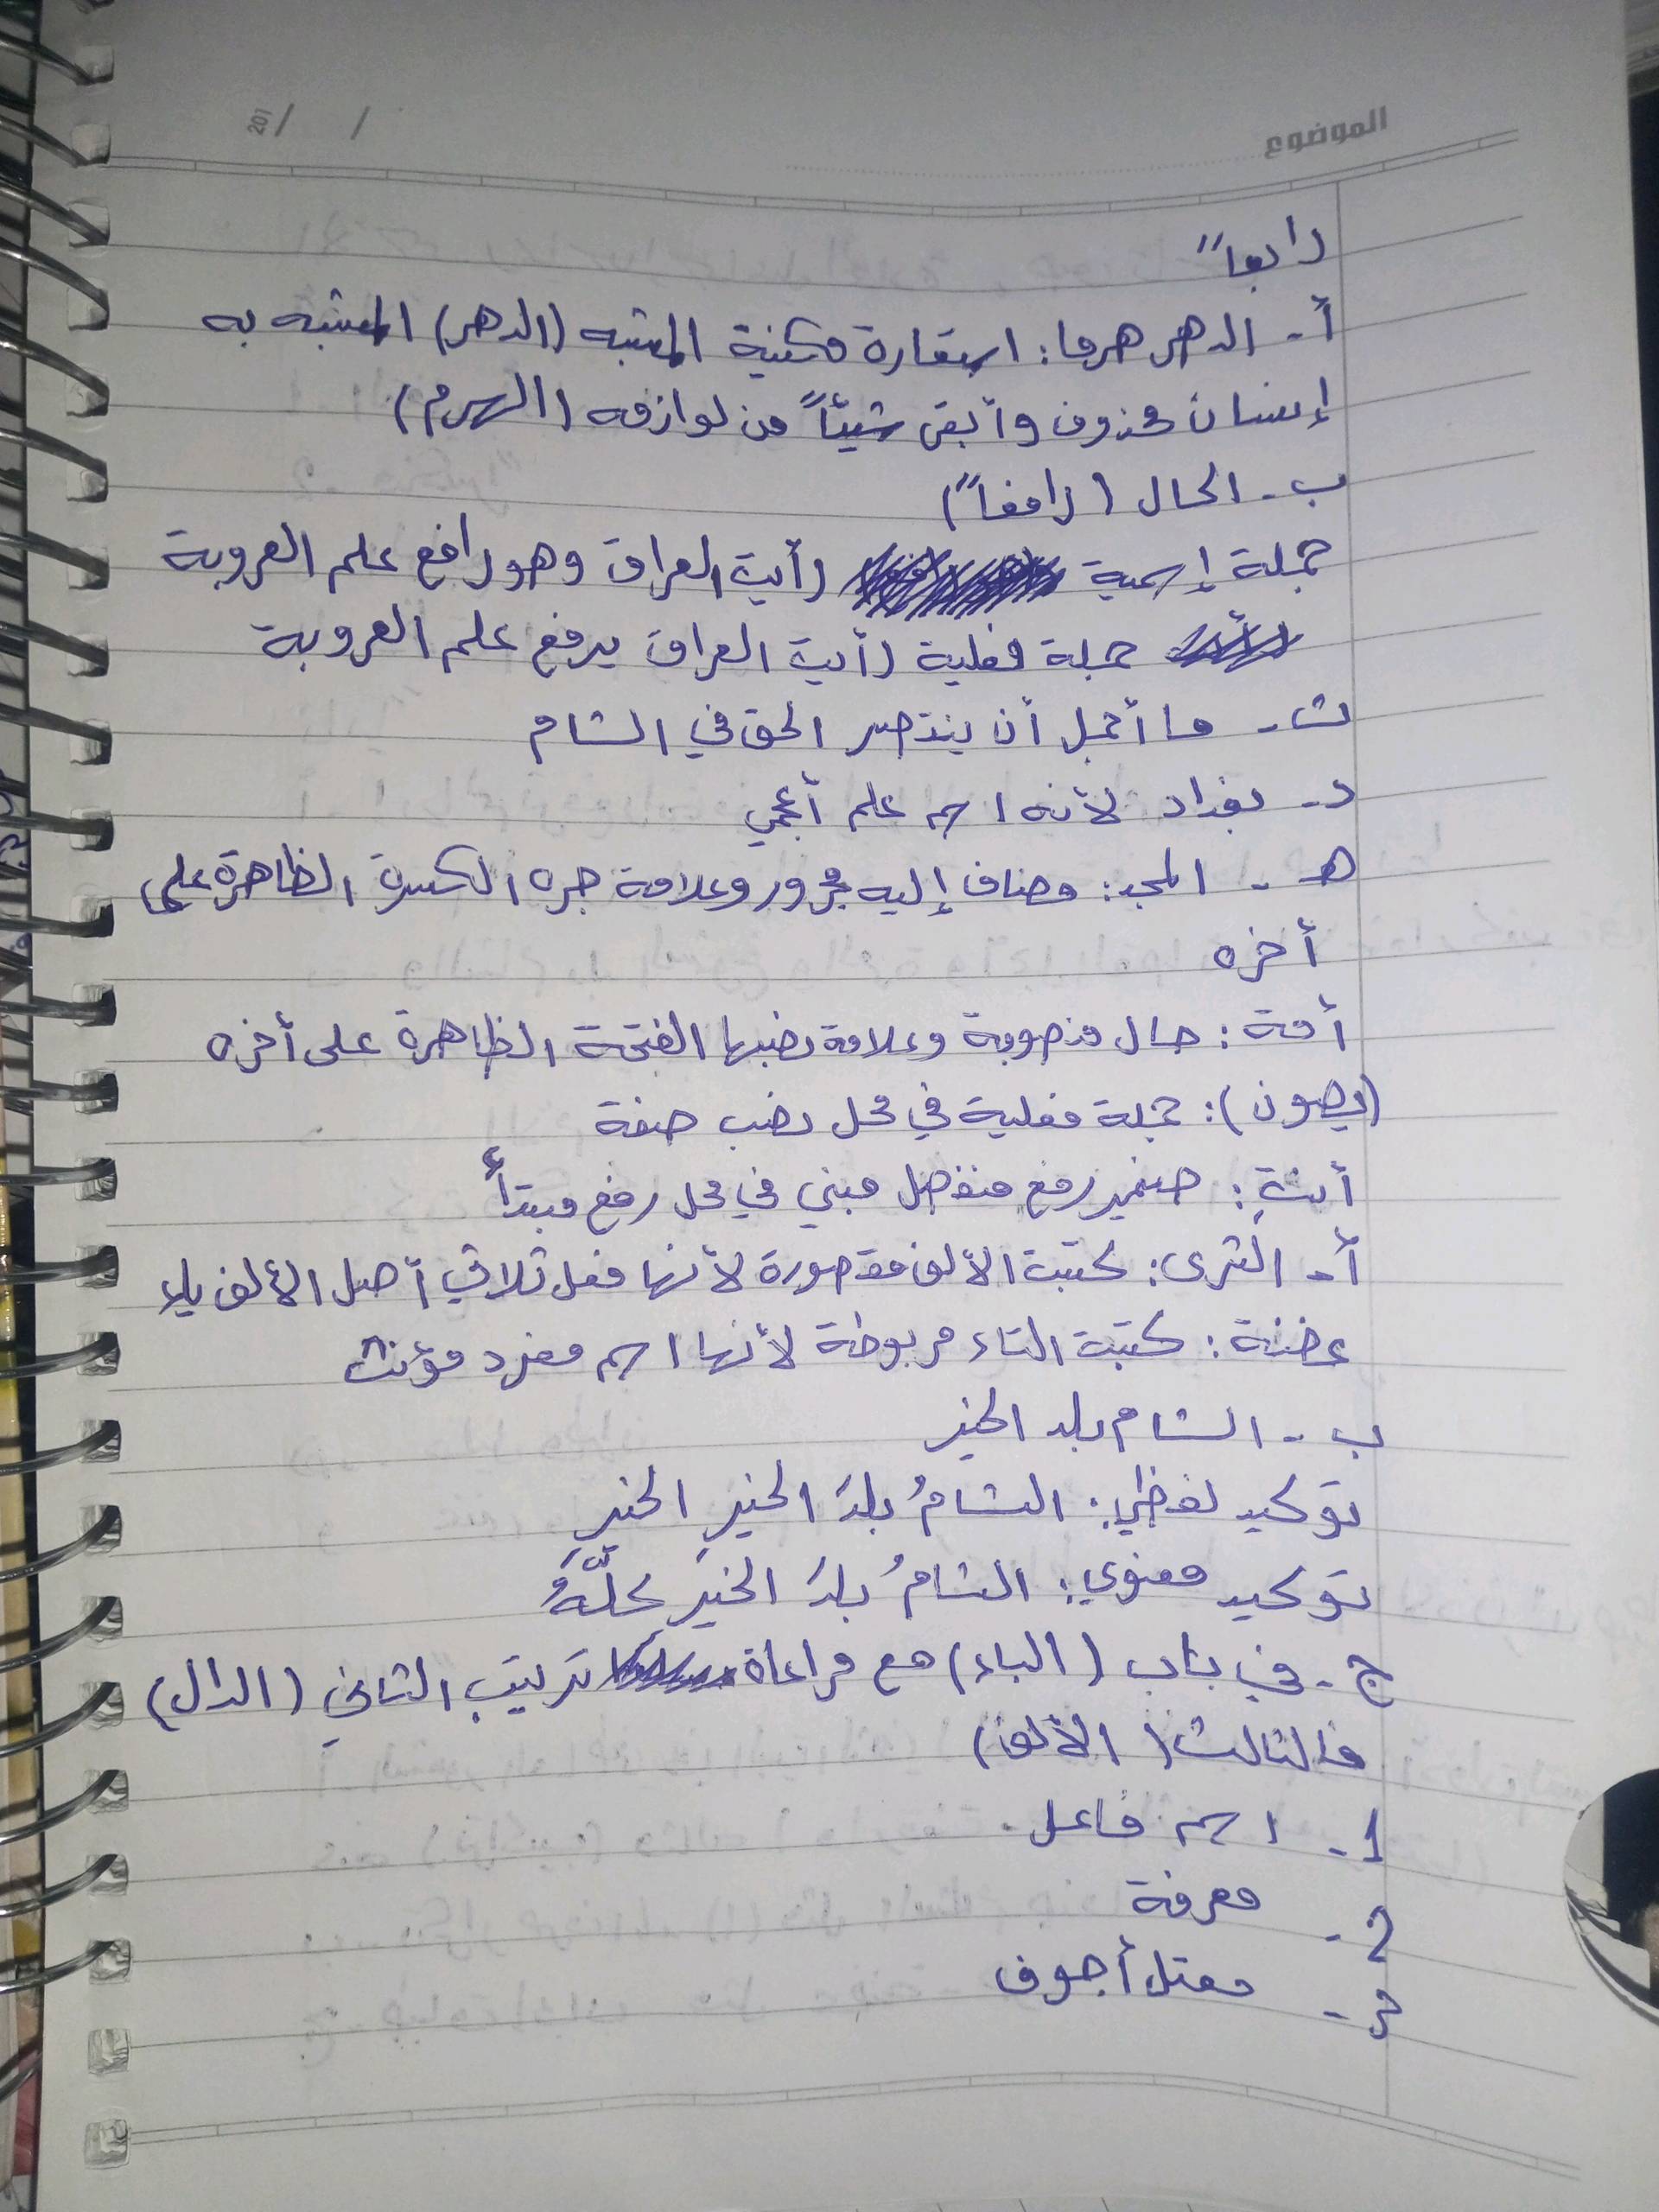 الموضوع
/ / 201
رابعاً
أ- الدهر هرما: استعارة مكنية المشبه (الدهر) المشبه به
إنسان محذوف وأبقى شيئاً من لوازمه (الهرم)
ب- الحال (رافعاً)
جملة إسمية رأيت العراق وهو رافع علم العروبة
جملة فعلية رأيت العراق يرفع علم العروبة
ت- ما أجمل أن ينتصر الحق في الشام
د- بغداد لأنه اسم علم أعجمي
هـ - المجد: مضاف إليه مجرور وعلامة جره الكسرة الظاهرة على
أخره
أمة: حال منصوبة وعلامة نصبها الفتحة الظاهرة على أخره
(يصون): جملة فعلية في محل نصب صفة
أنتِ: ضمير رفع منفصل مبني في محل رفع مبتدأ
أ- الثرى: كتبت الألف مقصورة لأنها فعل ثلاثي أصل الألف ياء
كتبت التاء مربوطة لأنها اسم مفرد مؤنث
ب- الشام بلد الخير
توكيد لفظي: الشامُ بلدُ الخيرِ الخيرِ
توكيد معنوي: الشامُ بلدُ الخيرِ كلّهُ
ج- في باب (الباء) مع مراعاة ترتيب الثاني (الدال)
فالثالث (الألف)
1- اسم فاعل.
2- معرفة
3- معتل أجوف